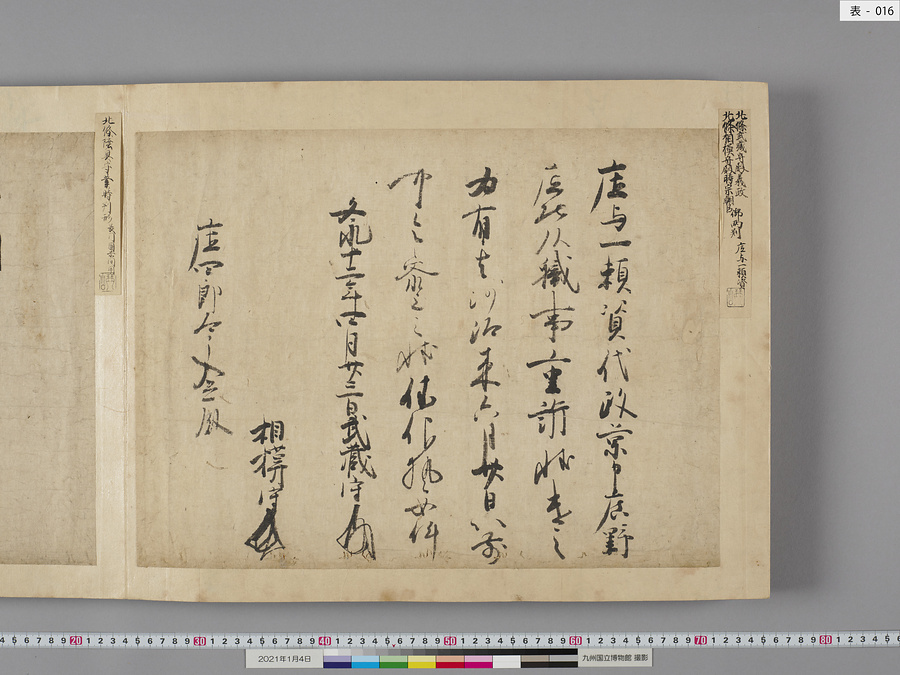 表 - 016
北條武蔵守殿義政
北條相模守殿時宗朝臣 御両判 庄与一頼資
庄与一頼資代政景申庄野
職事重訴状遣之
為有其沙汰来六月廿日以前
可令参上之状依仰執達如件
文永十二年四月廿三日武蔵守
相模守
庄四郎
北條陸奥守業時判
2021年1月4日
九州国立博物館 撮影